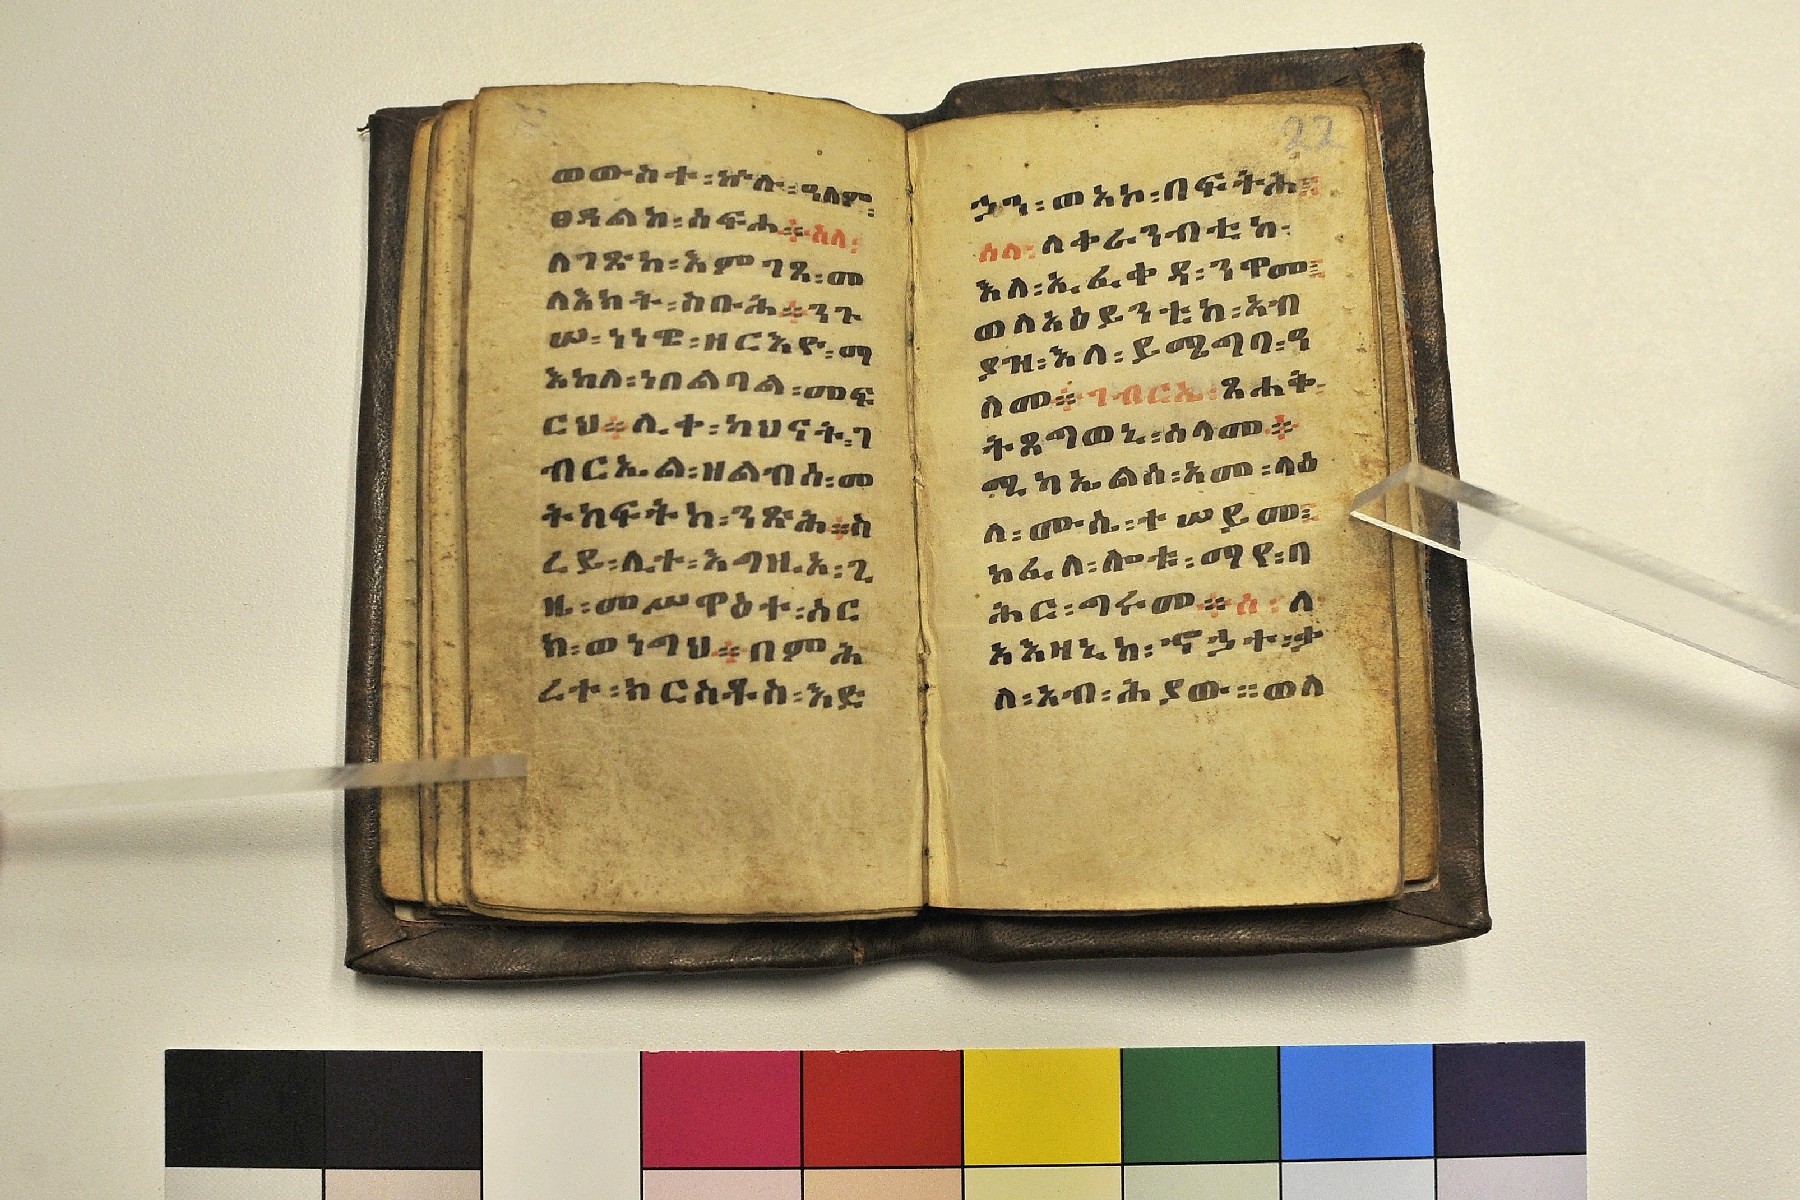 ወውስተ፡ኵሉ፡ዓለም፡
ፀዳልከ፡ሰፍሐ።ሰላ፡
ለገጽከ፡እምገጸ፡መ
ለእክት፡ስቡሕ።ንጉ
ሠ፡ነነዌ፡ዘርእዮ፡ማ
እከለ፡ነበልባል፡መፍ
ርህ።ሊተ፡ካህናት፡ገ
ብርኤል፡ዘልብሰ፡መ
ትከፍትከ፡ንጽሕ።ስ
ረይ፡ሊተ፡እግዚአ፡ጊ
ዜ፡መሥዋዕተ፡ሰርከ
ከ፡ወነግህ።በምሕ
ረተ፡ክርስቶስ፡እድ
22
ኃን፡ወአኮ፡በፍትሕ።
ሰላ፡ለቀራንብቲከ፡
እለ፡ኢፈቀዳ፡ንዋመ።
ወለአዕይንቲከ፡አብ
ያዝ፡እለ፡ይሜግባ፡ዓ
ለመ።ገብርኤ፡ጸሐት፡
ትጸግወኒ፡ሰላመ።
ሚካኤልሰ፡አመ፡ላዕ
ለ፡ሙሴ፡ተሠይመ።
ከፈለ፡ሎቱ፡ማየ፡በ
ሕር፡ግሩመ።ሰ፡ለ
አእዛኒከ፡ኆኃተ፡ቃ
ለ፡አብ፡ሕያው።ወለ